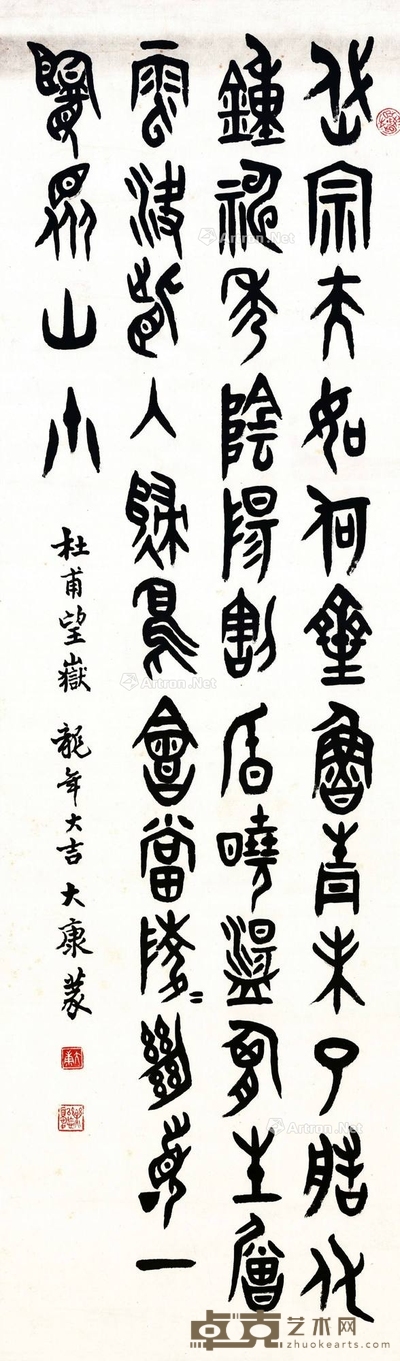 岱宗夫如何齊魯青未了艁化
鍾神秀陰陽割昏曉盪胸生層
雲決眥入歸鳥會當陵絕頂一
覽眾山小
杜甫望嶽 龍年大吉 大康篆
Artron.Net
Artron.Net
Artron.Net
卓克艺术网
zhuokearts.com